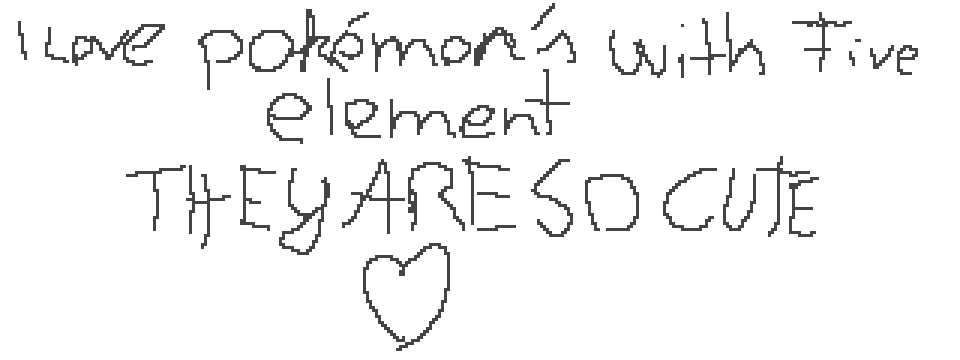 I Love pokémon's with Five
element
THEY ARE SO CUTE